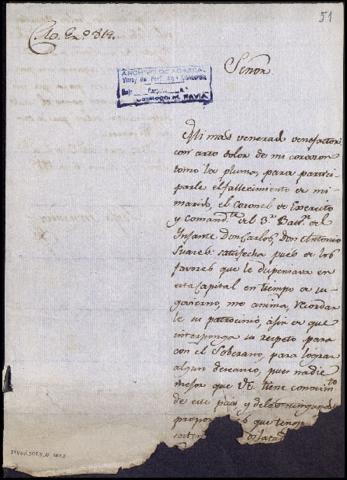 51
Señor
Mi mas venerado venefactor
con arto dolor de mi corazon
tomo la pluma, para partici-
parle el fallecimiento de mi
marido, el Coronel de Exercito
y Comand.te del 3.r Batt.n del
Ynfante Don Carlos, don Antonio
Suarez satisfecha pues de los
favores que le dispensava en
esta Capital en tiempo de su
govierno, me anima, recordar
le su patrocinio, á fin de que
interponga su respeto para
con el Soberano, para lograr
algun descanso, pues nadie
mejor que VE tiene conocim.to
de este pais y de los ningunos
propor que tengo